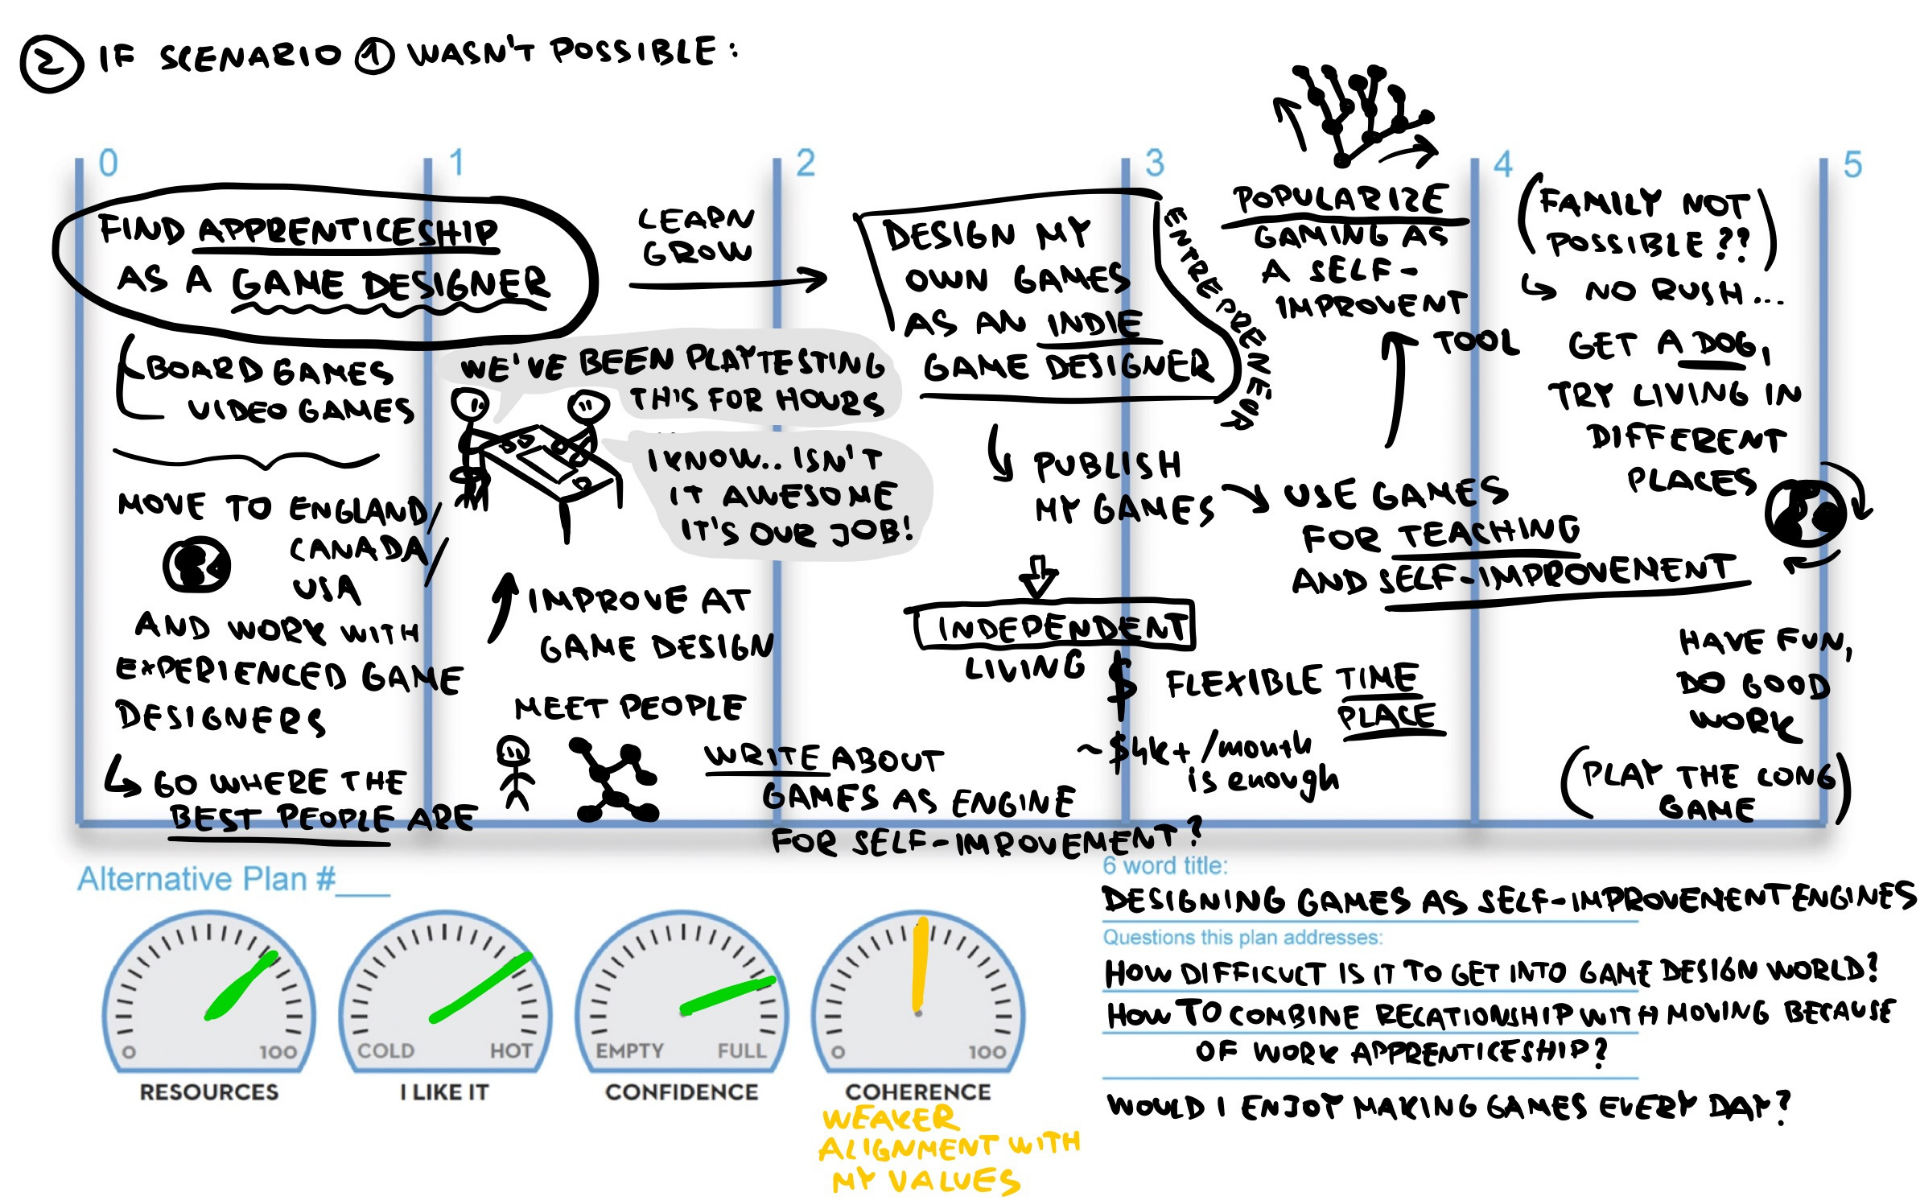 2 IF SCENARIO 1 WASN'T POSSIBLE:
0
1
2
3
4
5
FIND APPRENTICESHIP
AS A GAME DESIGNER
BOARD GAMES
VIDEO GAMES
MOVE TO ENGLAND/
CANADA/
USA
AND WORK WITH
EXPERIENCED GAME
DESIGNERS
GO WHERE THE
BEST PEOPLE ARE
LEARN
GROW
WE'VE BEEN PLAYTESTING
THIS FOR HOURS
I KNOW.. ISN'T
IT AWESOME
IT'S OUR JOB!
IMPROVE AT
GAME DESIGN
MEET PEOPLE
WRITE ABOUT
GAMES AS ENGINE
FOR SELF-IMPROVEMENT?
DESIGN MY
OWN GAMES
AS AN INDIE
GAME DESIGNER
ENTREPRENEUR
PUBLISH
MY GAMES
INDEPENDENT
LIVING
$
FLEXIBLE TIME
PLACE
~$4k+/month
is enough
POPULARIZE
GAMING AS
A SELF-
IMPROVENT
TOOL
USE GAMES
FOR TEACHING
AND SELF-IMPROVEMENT
(FAMILY NOT
POSSIBLE??)
NO RUSH...
GET A DOG,
TRY LIVING IN
DIFFERENT
PLACES
HAVE FUN,
DO GOOD
WORK
(PLAY THE LONG
GAME)
Alternative Plan #___
0 100
RESOURCES
COLD HOT
I LIKE IT
EMPTY FULL
CONFIDENCE
0 100
COHERENCE
WEAKER
ALIGNMENT WITH
MY VALUES
6 word title:
DESIGNING GAMES AS SELF-IMPROVEMENT ENGINES
Questions this plan addresses:
HOW DIFFICULT IS IT TO GET INTO GAME DESIGN WORLD?
HOW TO COMBINE RELATIONSHIP WITH MOVING BECAUSE
OF WORK APPRENTICESHIP?
WOULD I ENJOY MAKING GAMES EVERY DAY?